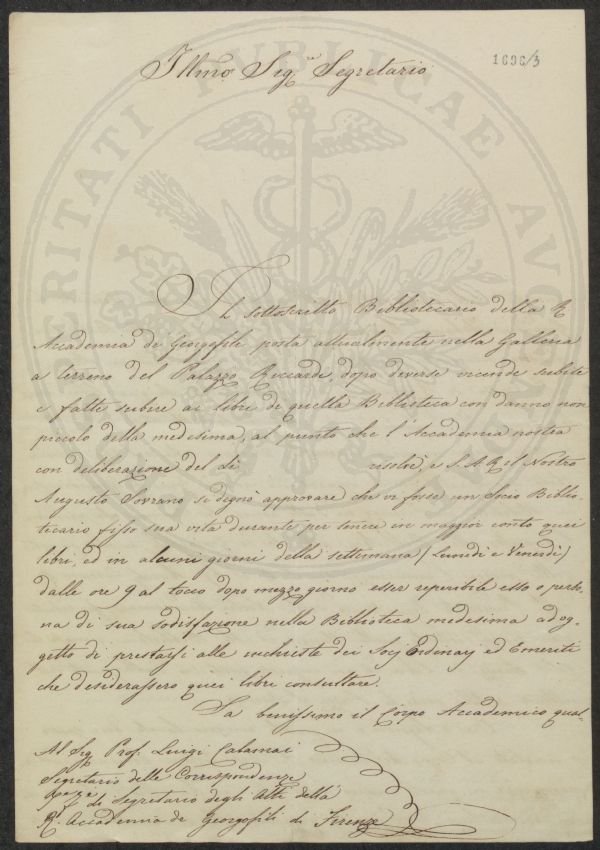 1696/3
Illmo Sig.re Segretario
Il sottoscritto Bibliotecario della R
Accademia de Georgofili posta attualmente nella Galleria
a terreno del Palazzo Riccardi, dopo diverse vicende subite
e fatte subire ai libri di quella Biblioteca con danno non
piccolo della medesima, al punto che l'Accademia nostra
con deliberazione del dì risolvè, e S. A. R. il Nostro
Augusto Sovrano si degnò approvare che vi fosse un Socio Biblio-
tecario fisso sua vita durante per tenere in maggior conto quei
libri, ed in alcuni giorni della settimana (Lunedì e Venerdì)
dalle ore 9 al tocco dopo mezzo giorno esser reperibile esso o perso-
na di sua sodisfazione nella Biblioteca medesima ad og-
getto di prestarsi alle richieste dei Socj Ordinarj ed Emeriti
che desiderassero quei libri consultare.
Sa benissimo il Corpo Accademico qual-
Al Sig Prof. Luigi Calamai
Segretario delle Corrispondenze
di Segretario degli Atti della
R. Accademia de Georgofili di Firenze